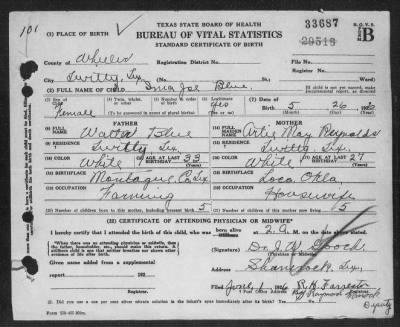 101
TEXAS STATE BOARD OF HEALTH
BUREAU OF VITAL STATISTICS
STANDARD CERTIFICATE OF BIRTH
33687
29513
B.O.V.S.
B
(1) PLACE OF BIRTH
County of Wheeler
Registration District No.
File No.
City of Twitty, Tex
(No. St.)
Register No.
(2) FULL NAME OF CHILD Irma Joe Blue.
If child is not yet named, make supplemental report, as directed
(3) Sex Female
(4) Twin, triplet, or other?
(5) Number, in order of birth
(6) Legitimate Yes
(7) Date of Birth 5 26 192
(Month) (Day) (Year)
FATHER
MOTHER
(8) FULL NAME Walter Blue
(14) FULL MAIDEN NAME Artie May Reynolds
(9) RESIDENCE Twitty, Tex.
(15) RESIDENCE Twitty, Tex.
(10) COLOR White
(11) AGE AT LAST BIRTHDAY 33 (Years)
(16) COLOR White
(17) AGE AT LAST BIRTHDAY 27 (Years)
(12) BIRTHPLACE Montague Co. Tex
(18) BIRTHPLACE Loco, Okla.
(13) OCCUPATION Farming
(19) OCCUPATION Housewife
(20) Number of children born to this mother, including present birth 5
(21) Number of children of this mother now living 5
(22) CERTIFICATE OF ATTENDING PHYSICIAN OR MIDWIFE*
I hereby certify that I attended the birth of this child, who was born alive at 2 a. M. on the date above stated.
*When there was no attending physician or midwife, then the father, householder, etc., should make this return. A stillborn child is one that neither breathes nor shows other evidence of life after birth.
(Signature) Dr. J. W. Gooch
(Physician or Midwife)
Given name added from a supplemental report 192
Address Shamrock, Tex,
Filed June 1, 1926 R. H. Forrester
Post Office Address Registrar
Deputy
(23) Did you use a one per cent silver nitrate solution in the infant's eyes immediately after birth?